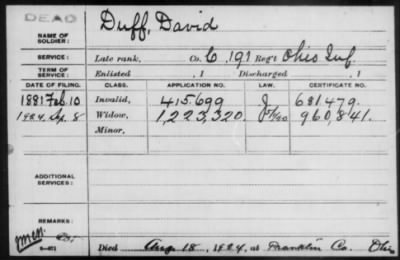 DEAD
NAME OF SOLDIER: Duff, David
SERVICE: Late rank, Co. C, 197 Reg't Ohio Inf.
TERM OF SERVICE: Enlisted , 1 Discharged , 1
DATE OF FILING. CLASS. APPLICATION NO. LAW. CERTIFICATE NO.
1881 Feb. 10 Invalid, 415.699 J 681.479.
1924. Sep. 8 Widow, 1,223,320. 960,841.
Minor,
ADDITIONAL SERVICES:
REMARKS:
Died Aug 18, 1924, at Franklin Co. Ohio